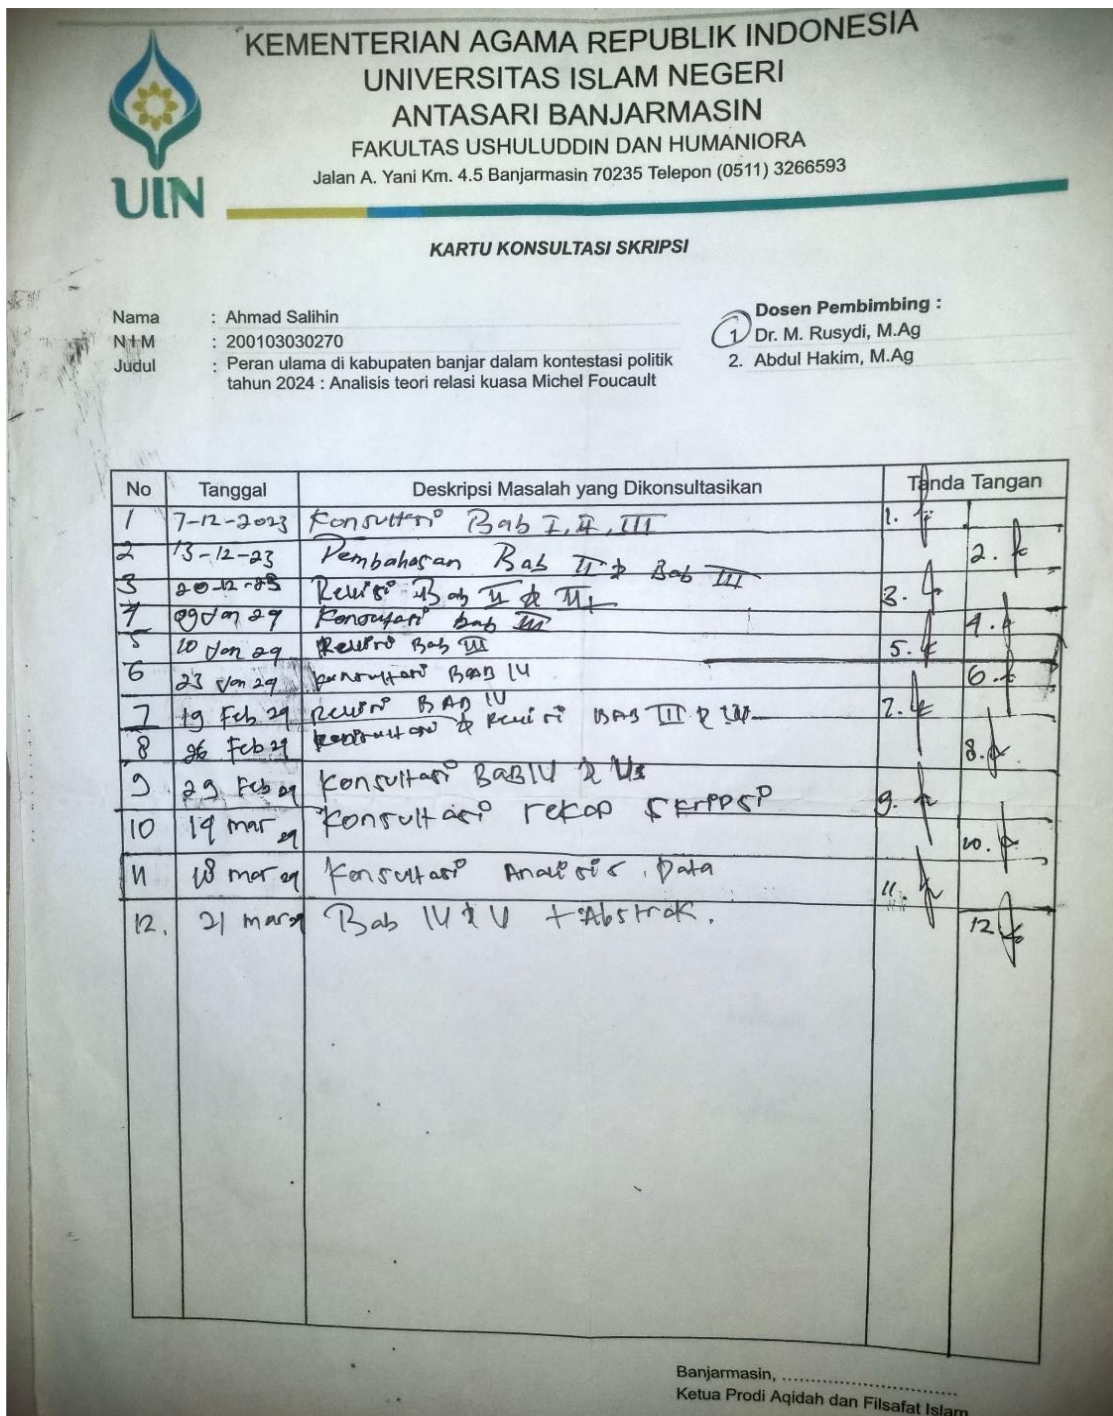 KEMENTERIAN AGAMA REPUBLIK INDONESIA
UNIVERSITAS ISLAM NEGERI
ANTASARI BANJARMASIN
FAKULTAS USHULUDDIN DAN HUMANIORA
Jalan A. Yani Km. 4.5 Banjarmasin 70235 Telepon (0511) 3266593
UIN
KARTU KONSULTASI SKRIPSI
Nama : Ahmad Salihin
NIM : 200103030270
Judul : Peran ulama di kabupaten banjar dalam kontestasi politik
tahun 2024 : Analisis teori relasi kuasa Michel Foucault
Dosen Pembimbing :
1. Dr. M. Rusydi, M.Ag
2. Abdul Hakim, M.Ag
No Tanggal Deskripsi Masalah yang Dikonsultasikan Tanda Tangan
1 7-12-2023 Konsultasi Bab I, II, III 1.
2 13-12-23 Pembahasan Bab II & Bab III 2.
3 20-12-23 Revisi Bab II & III 3.
4 09 Jan 24 Konsultasi bab III 4.
5 10 Jan 24 Revisi Bab III 5.
6 23 Jan 24 Konsultasi BAB IV 6.
7 19 Feb 24 Revisi BAB IV 7.
8 26 Feb 24 Konsultasi & Revisi BAB III & IV 8.
9 29 Feb 24 Konsultasi BAB IV & V 9.
10 14 Mar 24 Konsultasi rekap Skripsi 10.
11 18 mar 24 Konsultasi Analisis Data 11.
12. 21 mar 24 Bab IV & V + Abstrak. 12
Banjarmasin, ....................................
Ketua Prodi Aqidah dan Filsafat Islam